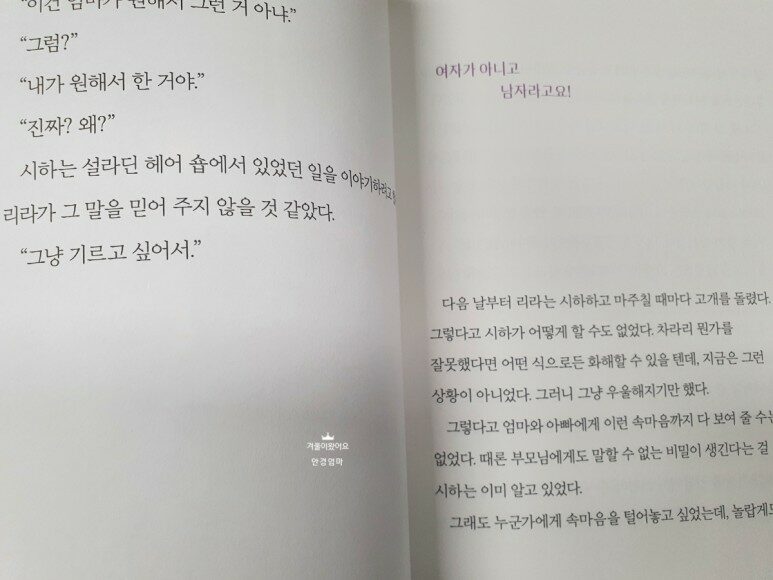 “이건 엄마가 원해서 그런 거 아냐.”
“그럼?”
“내가 원해서 한 거야.”
“진짜? 왜?”
시하는 설라딘 헤어 숍에서 있었던 일을 이야기하려고
리라가 그 말을 믿어 주지 않을 것 같았다.
“그냥 기르고 싶어서.”
겨울이왔어요
안경엄마
여자가 아니고
남자라고요!
다음 날부터 리라는 시하하고 마주칠 때마다 고개를 돌렸다.
그렇다고 시하가 어떻게 할 수도 없었다. 차라리 뭔가를
잘못했다면 어떤 식으로든 화해할 수 있을 텐데, 지금은 그런
상황이 아니었다. 그러니 그냥 우울해지기만 했다.
그렇다고 엄마와 아빠에게 이런 속마음까지 다 보여 줄 수는
없었다. 때론 부모님에게도 말할 수 없는 비밀이 생긴다는 걸
시하는 이미 알고 있었다.
그래도 누군가에게 속마음을 털어놓고 싶었는데, 놀랍게도